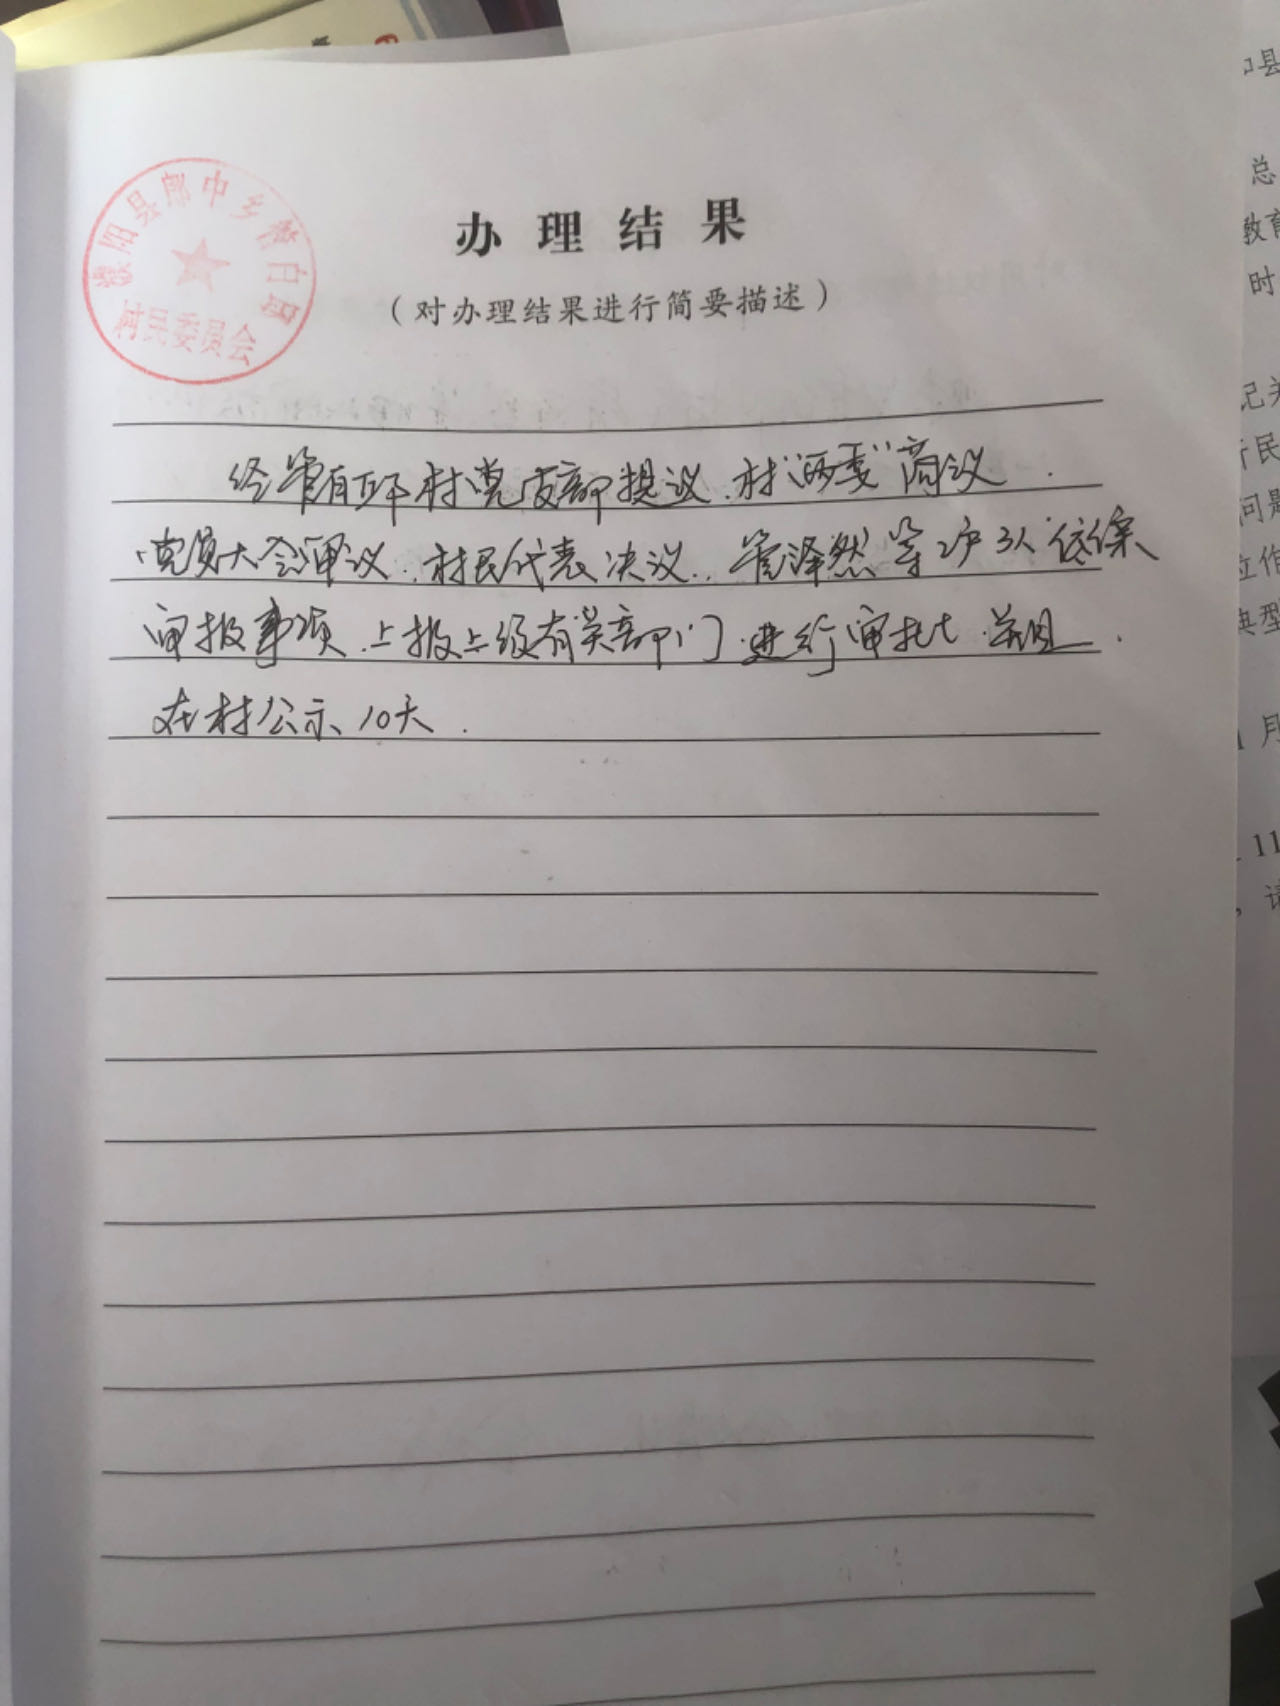 濮阳县郎中乡管白邱
村民委员会
办理结果
（对办理结果进行简要描述）
经管白邱村党支部提议、村“两委”商议、
党员大会审议、村民代表决议、管泽然等2户3人低保
审报事项、上报上级有关部门进行审批、并且、
在村公示10天.
总
教育
时
问题
立作
典型
月
11